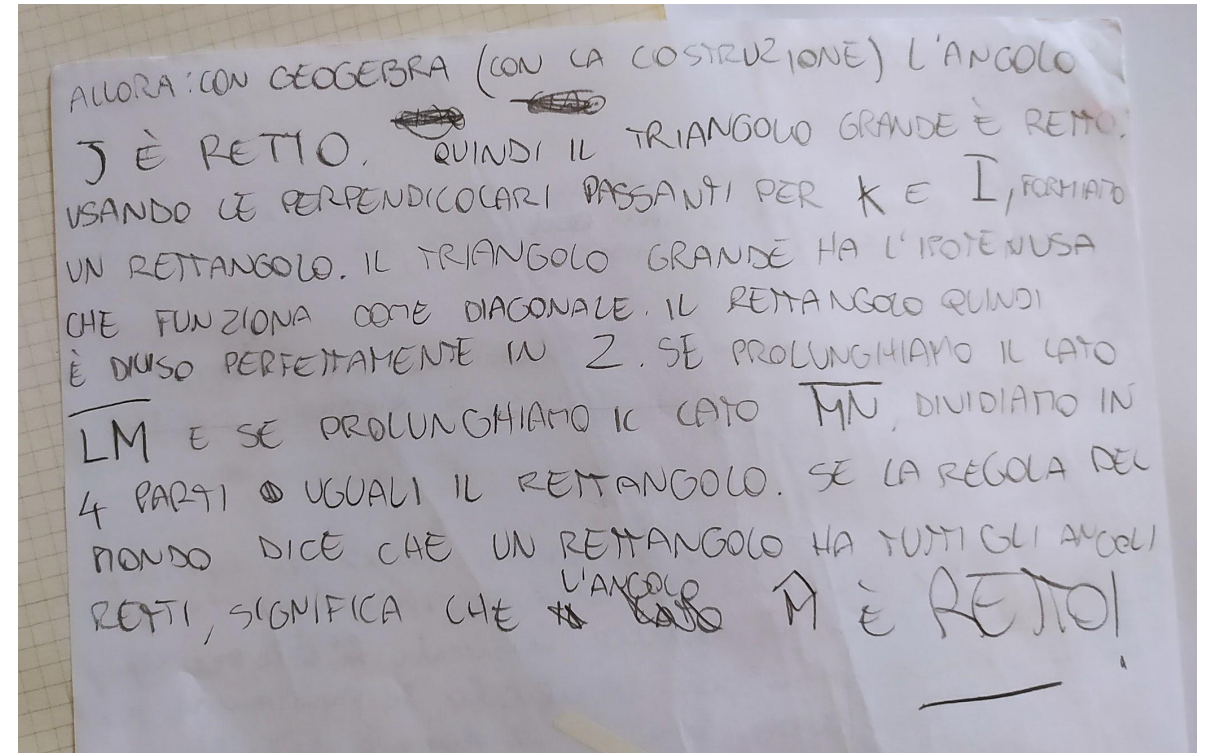 ALLORA: CON GEOGEBRA (CON LA COSTRUZIONE) L'ANGOLO
J È RETTO. QUINDI IL TRIANGOLO GRANDE È RETTO.
USANDO LE PERPENDICOLARI PASSANTI PER K E I, FORMIAMO
UN RETTANGOLO. IL TRIANGOLO GRANDE HA L'IPOTENUSA
CHE FUNZIONA COME DIAGONALE. IL RETTANGOLO QUINDI
È DIVISO PERFETTAMENTE IN 2. SE PROLUNGHIAMO IL LATO
L̅M̅ E SE PROLUNGHIAMO IL LATO M̅N̅, DIVIDIAMO IN
4 PARTI UGUALI IL RETTANGOLO. SE LA REGOLA DEL
MONDO DICE CHE UN RETTANGOLO HA TUTTI GLI ANGOLI
RETTI, SIGNIFICA CHE L'ANGOLO M̂ È RETTO!